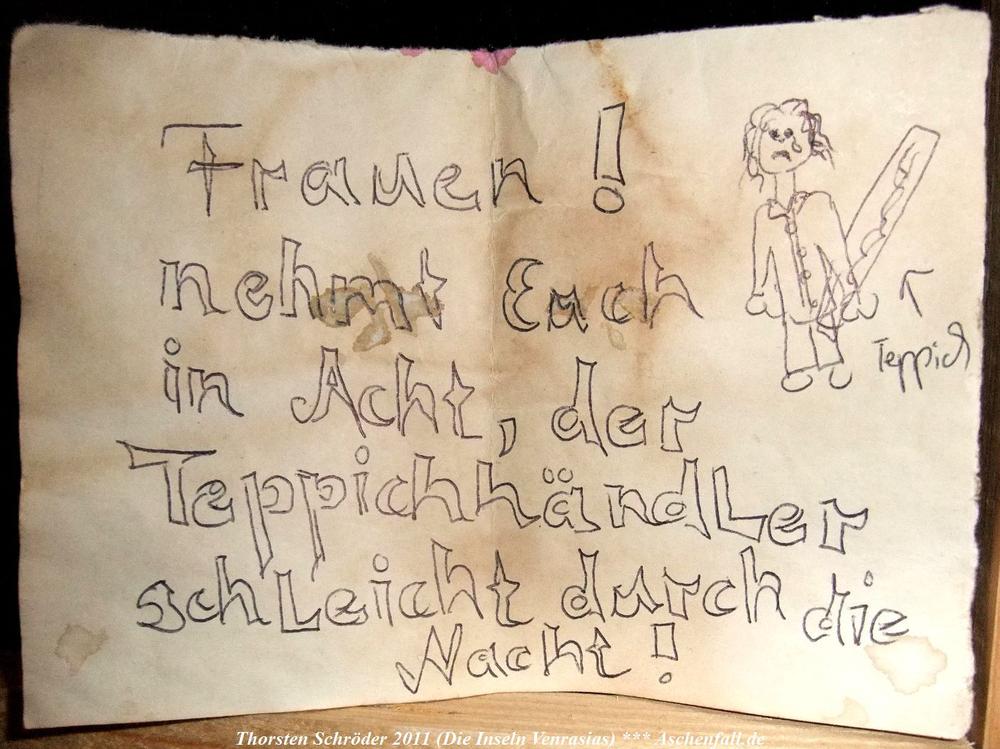 Frauen!
nehmt Euch
in Acht, der
Teppichhändler
schleicht durch die
Nacht!
Teppich
Thorsten Schröder 2011 (Die Inseln Venrasias) *** Aschenfall.de